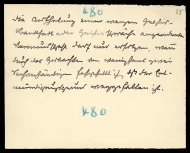 480
Die Aufhebung einer wegen Geistes-
krankheit oder Geistesschwäche angeordneten
Vormundschaft darf nur erfolgen, wenn
durch das Gutachten von wenigstens zwei
Sachverständigen festgestellt ist, daß der Ent-
mündigungsgrund weggefallen ist.
480